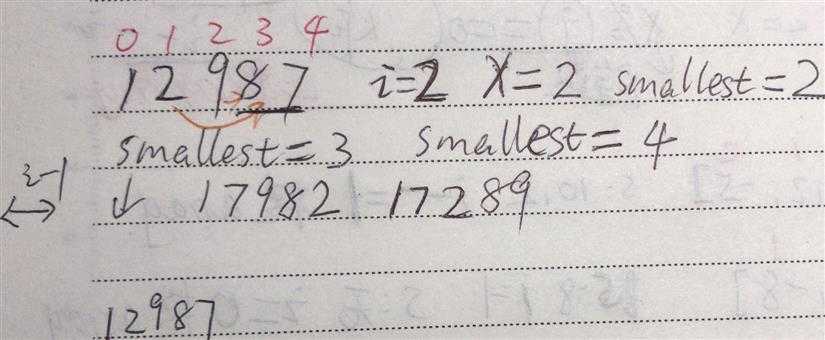 0 1 2 3 4
12987 i=2 X=2 smallest=2
smallest=3 smallest=4
↓ 17982 17289
12987